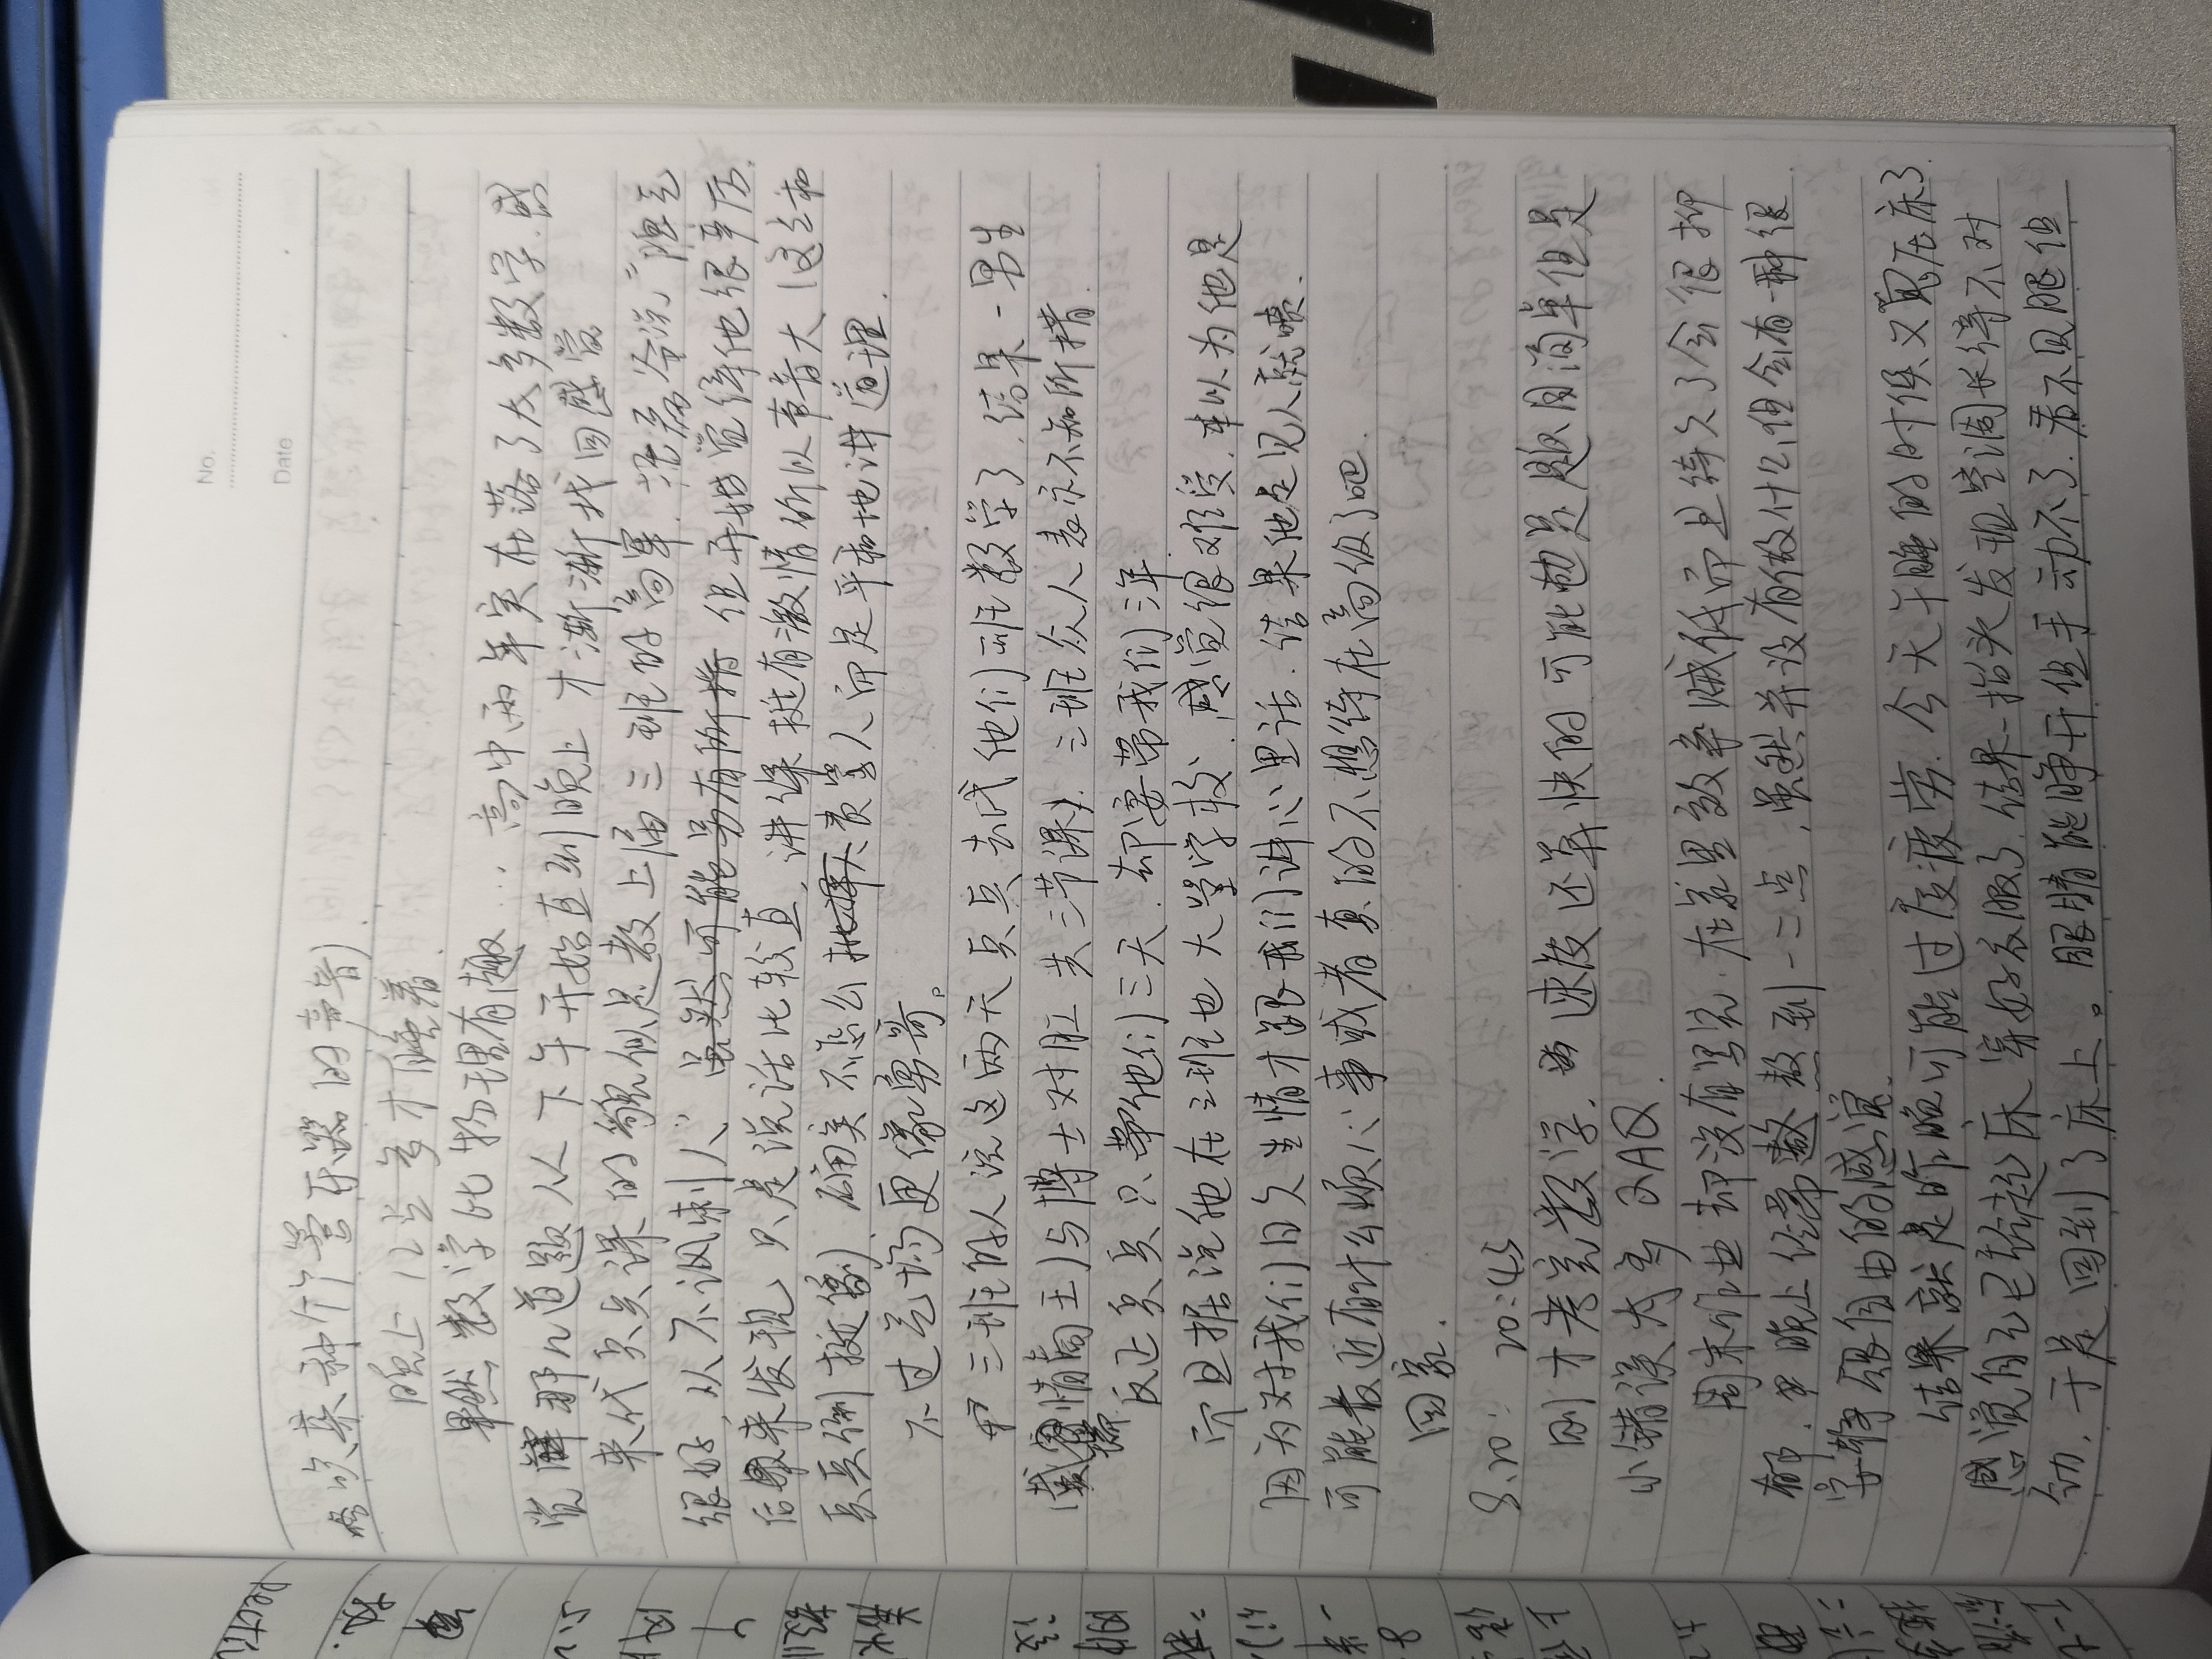 No.
Date
吹某种竹管乐器的声音).
晚上12点多才睡着.
果然数学比物理有趣... 高中两年实在落了太多数学.感
觉解那几道题从下午开始直到晚上才渐渐找回感觉
来代兵兵课的貌似是教上届三班的高军. 说"脾气
很好,从不讽刺人" 虽然可能另有所指 但开始觉得他很辛厉.
后来发现只是说话比较直,讲课挺有激情所以声音大(这点和
兵兵倒挺像).确实不怎么责骂人而是平和地讲道理.
不过气场更像勇哥。
三班的人说这两天兵兵去代他们班数学了.结果一男生
(情商王)与博士对肛共三节课).三班众人表示不知所措.
反正兵兵只带他们三天.却要带我们三年.
而且据说他在三班也大骂学校.感觉很难受.本以为他是
因为对我们日久生情才跟我们讲心里话.结果他是见人就喷.
可能最近有什么烦心事或者真的不想待在高级了吧.
回家.
8.20: 20:45
刚才考完数学.速度还算快的.可能也是题目简单但是
小错误太多QAQ.
周末作业却没有写完.在家里效率贼低而且待久了会很抑
郁.晚上经常熬到一二点,虽然并没有做什么,但会有一种很
宁静很自由的感觉.
结果就是昨晚可能过度疲劳.今天午睡的时候又鬼压床了.
感觉自己已经起床穿好衣服了.结果一抬头发现空调长得不对
劲,于是回到了床上。眼睛能睁开但手动不了.看不见腿但